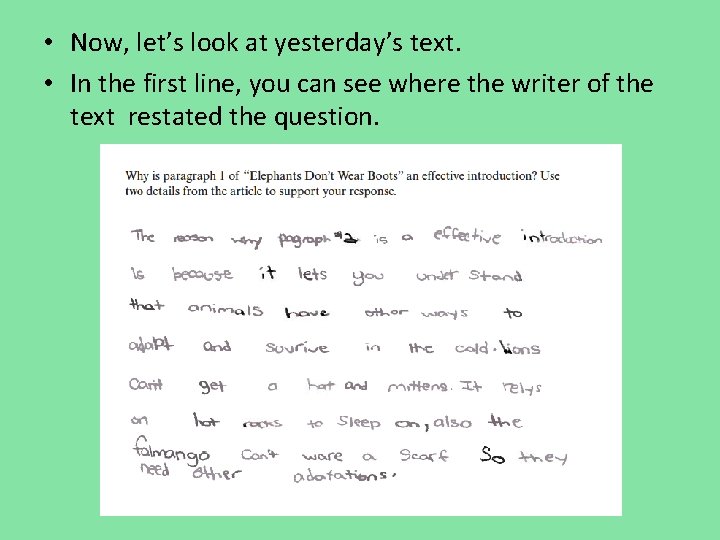 • Now, let’s look at yesterday’s text.
• In the first line, you can see where the writer of the
text restated the question.
Why is paragraph 1 of “Elephants Don’t Wear Boots” an effective introduction? Use
two details from the article to support your response.
The reason why pagraph #1 is a effective introduction
is because it lets you under stand
that animals have other ways to
adapt and suvrive in the cold. lions
Can't get a hat and mittens. It relys
on hot rocks to sleep on, also the
falmango Can't ware a Scarf So they
need other adatations.